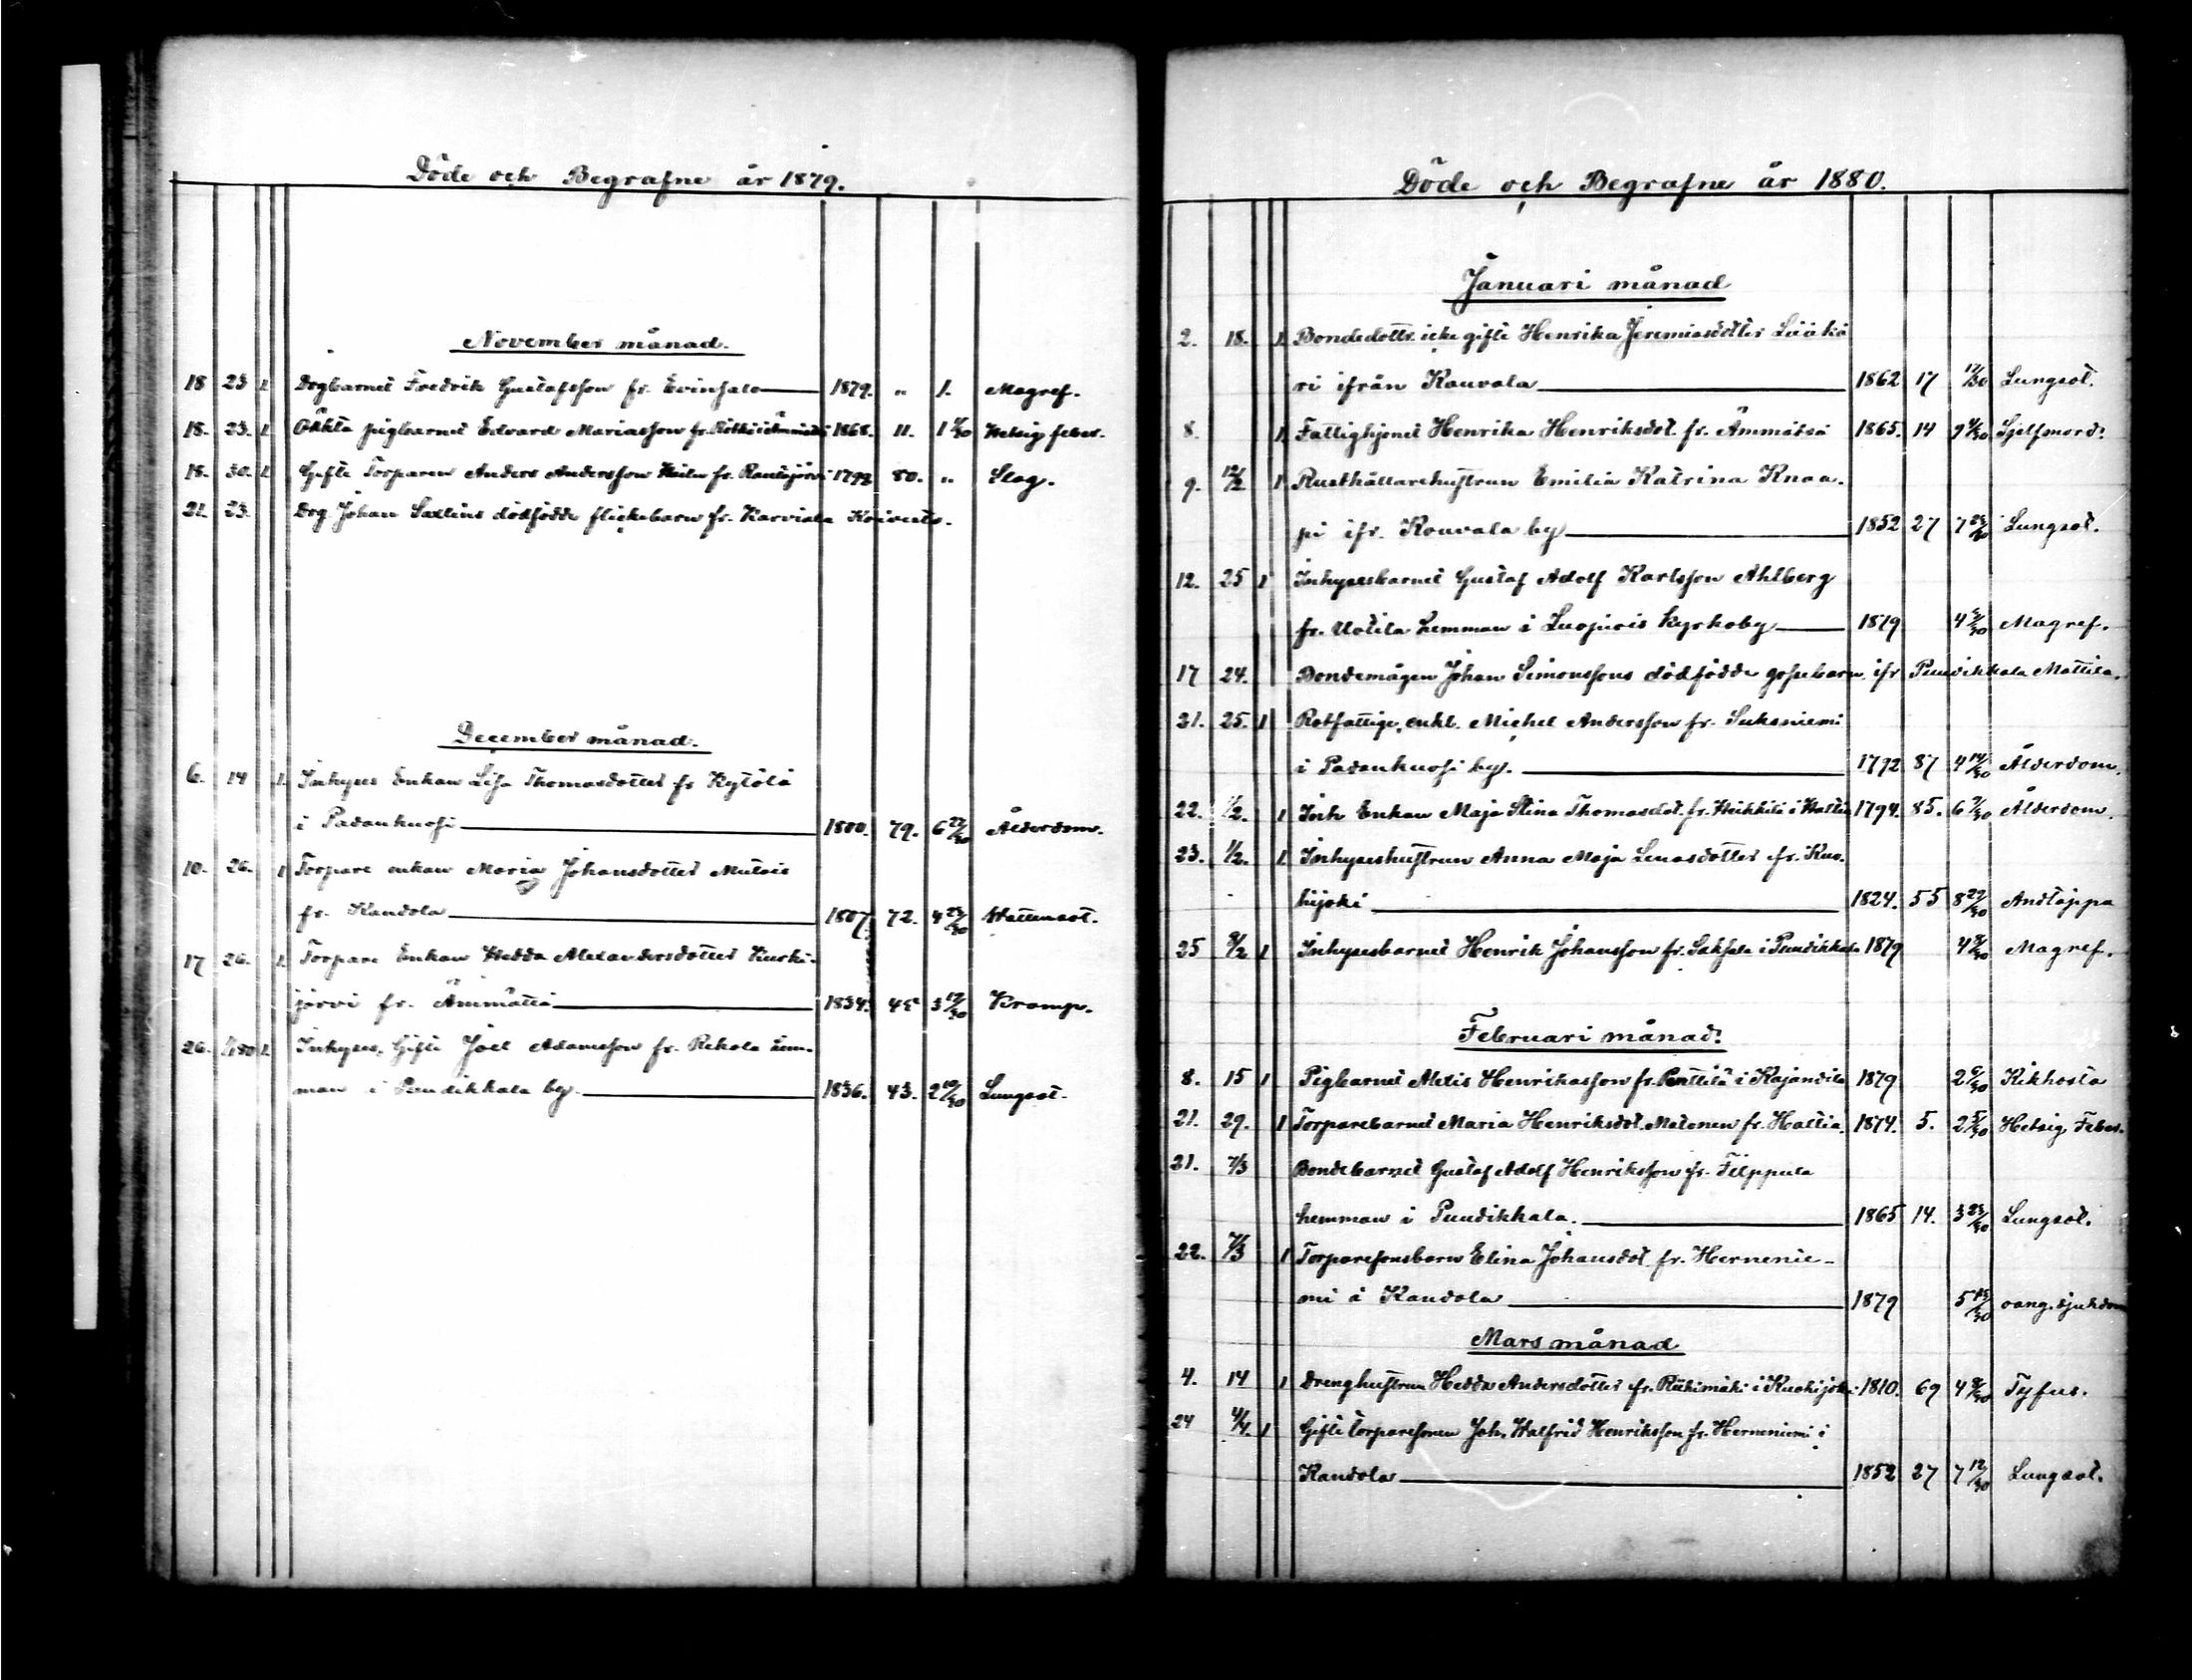 Döde och Begrafne år 1879.
November månad.
18 23 1. Drgbarnet Fredrik Gustafsson fr. Evinsalo 1879. " 1. Magref.
18. 23. 1. Oäkta pigbarnet Edvard Mariasson fr. 1868. 11. 1 Hetsig feber.
18. 30. 1. Gifte Torparen Anders Andersson fr. Rautajärvi 1799 80. " Slag.
21. 23. Drg. Johan Saxlins dödfödde flickebarn fr. Karviala Koivisto.
December månad.
6. 14 1. Inhyses Enkan Lisa Thomasdotter fr Kytölä
i Padankuosi 1800. 79. 6 22/30 Ålderdom.
10. 26. 1 Torpare enkan Maria Johansdotter Mutois
fr. Kandola 1807. 72. 4 23/30 Vattensot.
17 26. 1. Torpare Enkan Hedda Alexandersdotter Kurki-
järvi fr. Ämmättä 1834. 45 3 19/30 Kramp.
26. 1/1 80 1. Inhyses, Gifte Joel Adamsson fr. Rekola hem-
man i Pundikkala by. 1836. 43. 2 10/30 Lungsot.
Döde och Begrafne år 1880.
Januari månad
2. 18. 1. Bondedottr. icke gifte Henrika Jeremiasdotter Lääkä
ri ifrån Kouvala 1862 17 17/30 Lungsot.
8. 1. Fattighjonet Henrika Henriksdot. fr. Ämmätsä 1865. 14 9 Sjelfmord.
9. 12/2 1 Rusthållarehustrun Emilia Katrina Knaa.
pi ifr. Kouvala by 1852 27 7 Lungsot.
12. 25 1 Inhysesbarnet Gustaf Adolf Karlsson Ahlberg
fr. Uotila hemman i Luopiois Kyrkoby 1879 4 Magref.
17 24. Bondemågen Johan Simonssons dödfödde gossebarn ifr Pundikkala Mattila.
21. 25. 1 Rotfattige, enkl. Michel Andersson fr. Suksniemi
i Padankuosi by. 1792 87 4 14/30 Ålderdom.
22. 1/2. 1 Inh Enkan Maja Stina Thomasdot. fr. Heikkilä i Hattia 1794. 85. 6 Ålderdom.
23. 1/2. 1. Inhyseshustrun Anna Maja Lenasdotter fr. Kuo.
hijoki 1824. 55 8 29/30 Andtäppa
25 8/2 1 Inhysesbarnet Henrik Johansson fr. Saksala i Pundikkala 1879 4 Magref.
Februari månad.
8. 15 1 Pigbarnet Alexis Henrikasson fr. Penttilä i Kajandila 1879 2 Kikhosta
21. 29. 1 Torparebarnet Maria Henriksdot. Metonen fr. Hattia. 1874. 5. 2 5/30 Hetsig Feber.
21. 7/3 Bondebarnet Gustaf Adolf Henriksson fr. Filppula
hemman i Pundikkala. 1865 14. 3 23/30 Lungsot.
22. 7/3 1 Torparesonsbarn Elina Johansdot. fr. Hernenie-
mi i Kandola 1879 5 oang. sjukdom
Mars månad
4. 14 1 Drenghustrun Hedda Andersdotter fr. Riihimäki i Kuohijoki 1810. 69 4 Tyfus.
24 4/4. 1 Gifte torparesonen Joh. Walfrid Henriksson fr. Herneniemi i
Kandola 1852 27 7 12/30 Lungsot.